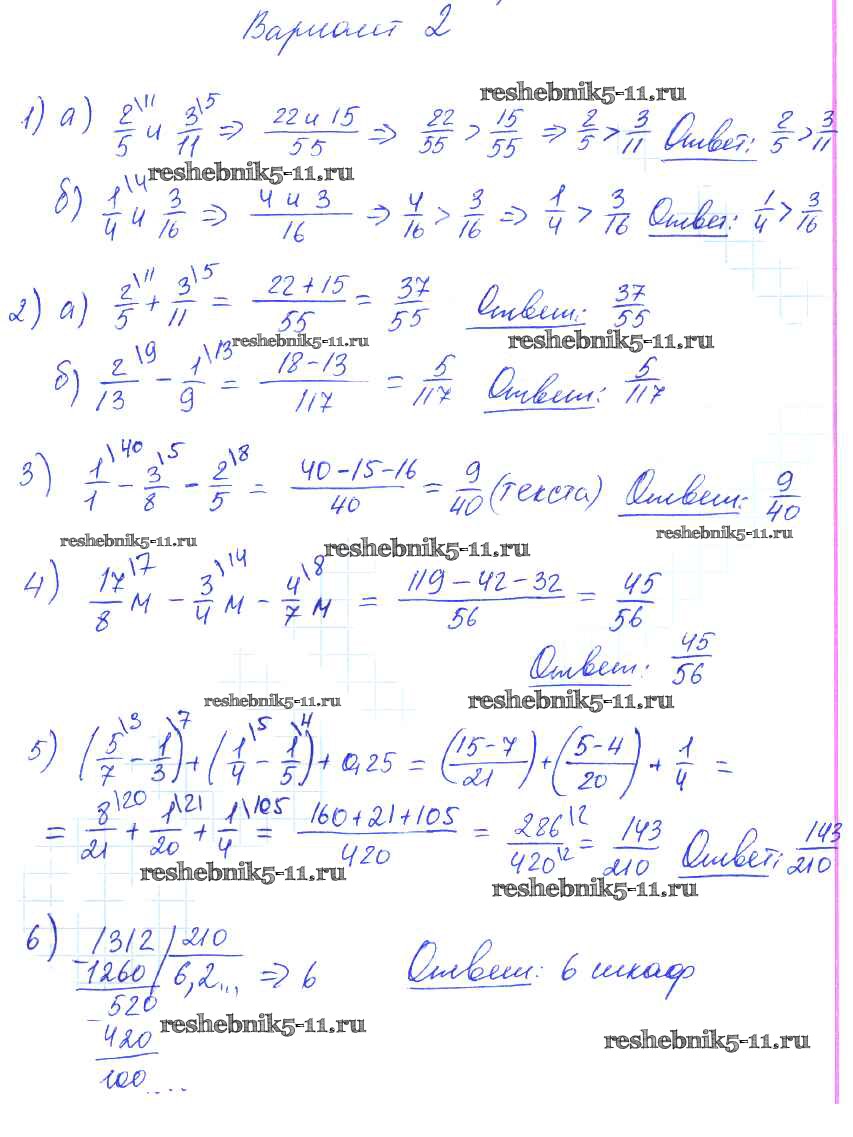 Вариант 2
reshebnik5-11.ru
1) а) 2\11/5 и 3\5/11 ⇒ 22 и 15/55 ⇒ 22/55 > 15/55 ⇒ 2/5 > 3/11 Ответ: 2/5 > 3/11
reshebnik5-11.ru
б) 1\4/4 и 3/16 ⇒ 4 и 3/16 ⇒ 4/16 > 3/16 ⇒ 1/4 > 3/16 Ответ: 1/4 > 3/16
2) а) 2\11/5 + 3\5/11 = 22+15/55 = 37/55 Ответ: 37/55
reshebnik5-11.ru reshebnik5-11.ru
б) 2\9/13 - 1\13/9 = 18-13/117 = 5/117 Ответ: 5/117
3) 1\40/1 - 3\5/8 - 2\8/5 = 40-15-16/40 = 9/40 (текста) Ответ: 9/40
reshebnik5-11.ru reshebnik5-11.ru reshebnik5-11.ru
4) 17\7/8 м - 3\14/4 м - 4\8/7 м = 119-42-32/56 = 45/56
Ответ: 45/56
reshebnik5-11.ru reshebnik5-11.ru
5) (5\3/7 - 1\7/3) + (1\5/4 - 1\4/5) + 0,25 = (15-7/21) + (5-4/20) + 1/4 =
= 8\20/21 + 1\21/20 + 1\105/4 = 160+21+105/420 = 286\2/420\2 = 143/210 Ответ: 143/210
reshebnik5-11.ru reshebnik5-11.ru
6) 1312 | 210
-1260 | 6,2... ⇒ 6 Ответ: 6 шкаф
520
reshebnik5-11.ru
-420
reshebnik5-11.ru
100....